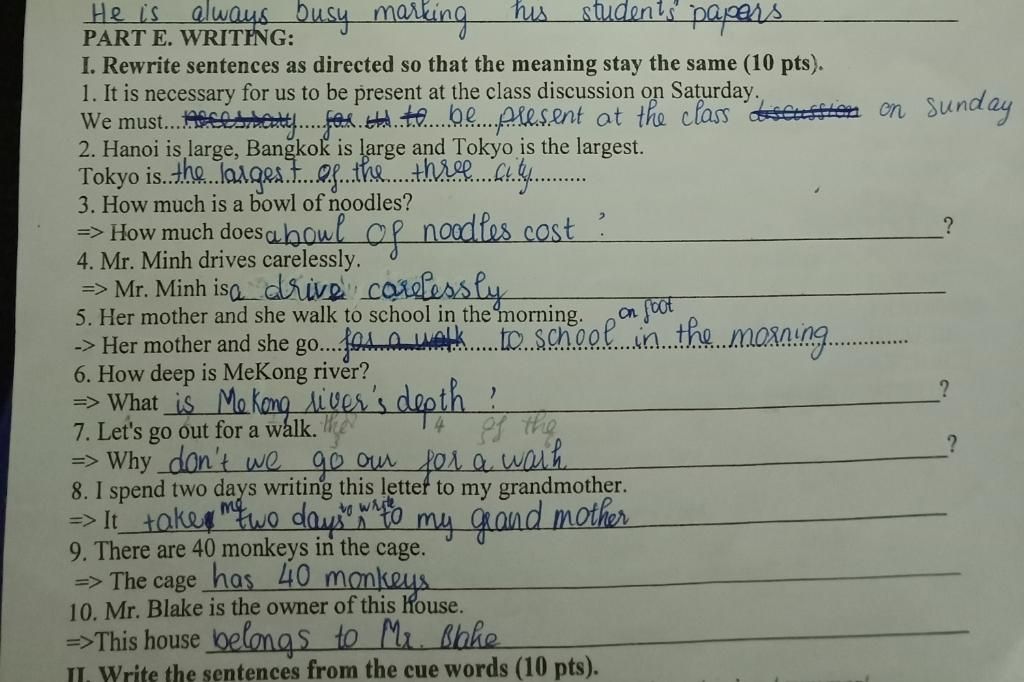 He is always busy marking his students' papers
PART E. WRITING:
I. Rewrite sentences as directed so that the meaning stay the same (10 pts).
1. It is necessary for us to be present at the class discussion on Saturday.
We must...necessary for us to be present at the class discussion on sunday
2. Hanoi is large, Bangkok is large and Tokyo is the largest.
Tokyo is..the largest of the three city..........
3. How much is a bowl of noodles?
=> How much does a bowl of noodles cost ? ?
4. Mr. Minh drives carelessly.
=> Mr. Minh is a drive carelessly
5. Her mother and she walk to school in the morning.
on foot
-> Her mother and she go...for a walk......to school in the morning..............
6. How deep is MeKong river?
=> What is Mekong river's depth ? ?
7. Let's go out for a walk. the 4 of the
=> Why don't we go out for a walk ?
8. I spend two days writing this letter to my grandmother.
=> It take me two days to write to my grand mother
9. There are 40 monkeys in the cage.
=> The cage has 40 monkeys
10. Mr. Blake is the owner of this house.
=>This house belongs to Mr. Blake
II. Write the sentences from the cue words (10 pts).